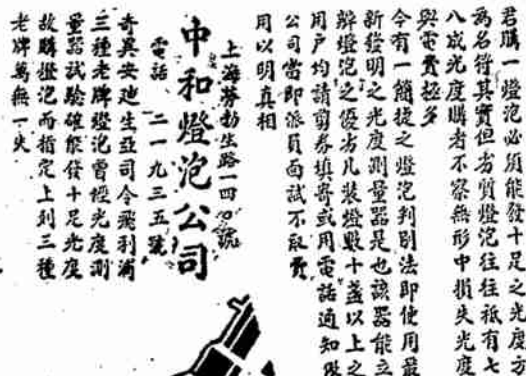 君購一燈泡必須能發十足之光度方
為名符其實但劣質燈泡往往祇有七
八成光度購者不察無形中損失光度
與電費極多
今有一簡捷之燈泡判別法即使用最
新發明之光度測量器是也該器能立
辨燈泡之優劣凡裝燈數十盞以上之
用户均請剪券填寄或用電話通知敝
公司當即派員面試不取費
用以明真相
上海勞勃生路一四〇號
中和燈泡公司
電話 二一九三五號
奇異安迪生亞司令飛利浦
三種老牌燈泡曾經光度測
量器試驗確能發十足光度
故購燈泡而指定上列三種
老牌萬無一失